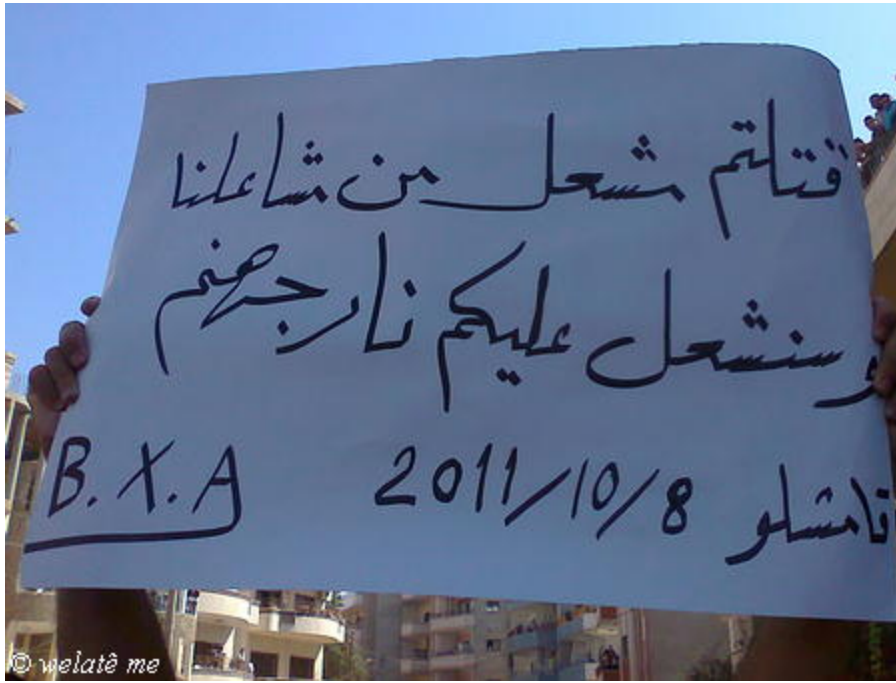 قتلتم مشعل من مشاعلنا
وسنشعل عليكم نار جهنم
قامشلو 2011/10/8 B.X.A
© welatê me